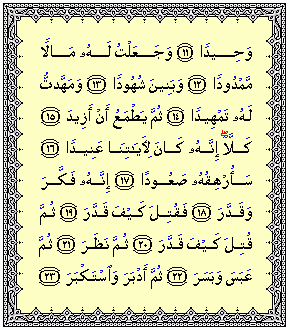 وَحِيدًا ١١ وَجَعَلْتُ لَهُۥ مَالًا
مَّمْدُودًا ١٢ وَبَنِينَ شُهُودًا ١٣ وَمَهَّدتُّ
لَهُۥ تَمْهِيدًا ١٤ ثُمَّ يَطْمَعُ أَنْ أَزِيدَ ١٥
كَلَّآۖ إِنَّهُۥ كَانَ لِأَيَـٰتِنَا عَنِيدًا ١٦
سَأُرْهِقُهُۥ صَعُودًا ١٧ إِنَّهُۥ فَكَّرَ
وَقَدَّرَ ١٨ فَقُتِلَ كَيْفَ قَدَّرَ ١٩ ثُمَّ
قُتِلَ كَيْفَ قَدَّرَ ٢٠ ثُمَّ نَظَرَ ٢١ ثُمَّ
عَبَسَ وَبَسَرَ ٢٢ ثُمَّ أَدْبَرَ وَٱسْتَكْبَرَ ٢٣